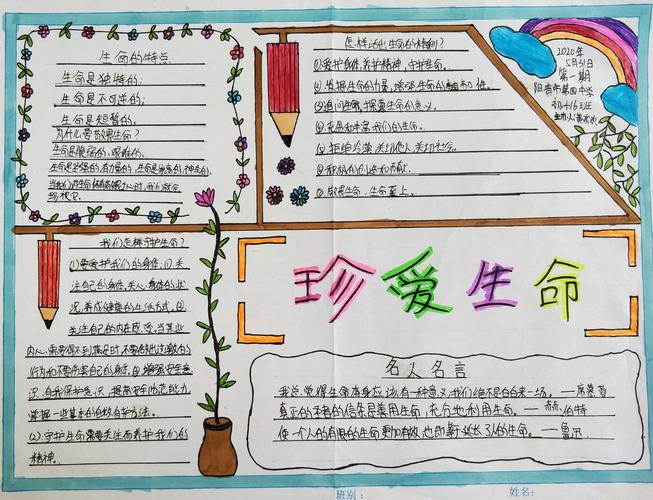 生命的特点
生命是独特的;
生命是不可逆的;
生命是短暂的。
为什么要敬畏生命?
生命是脆弱的、艰难的。
生命是坚强的、有力量的,生命是崇高的、神圣的。
怎样活出生命的精彩?
①爱护身体,养护精神,守护生命。
②发掘生命的力量,增强生命的
③追问生命,探索生命的意义。
④充盈和丰富我们的生命。
⑤拒绝冷漠,关切他人,关切社会。
⑦敬畏生命,生命至上。
2020年
5月31日
第一期
阳春市第四中学
初一16班
我们怎样守护生命?
(1)要爱护我们的身体,①关
注自己的身体,关心身体的状
况,养成健康的生活方式,②
关注自己的内在感受,当其业
行为和不要伤害自己的身体,③增强安全意
识、自我保护意识,提高安全防范能力,
掌握一些基本的自救自护方法。
(2)守护生命需要关注而养护我们的
精神。
珍爱生命
名人名言
我总觉得生命本身应该有一种意义,我们绝不是白白来一场。——席慕蓉
真正的不朽的信条是善用生命,充分地利用生命。——赫伯特
使一个人的有限的生命更加有效,也即等于延长了人的生命。——鲁迅
班别:
姓名: